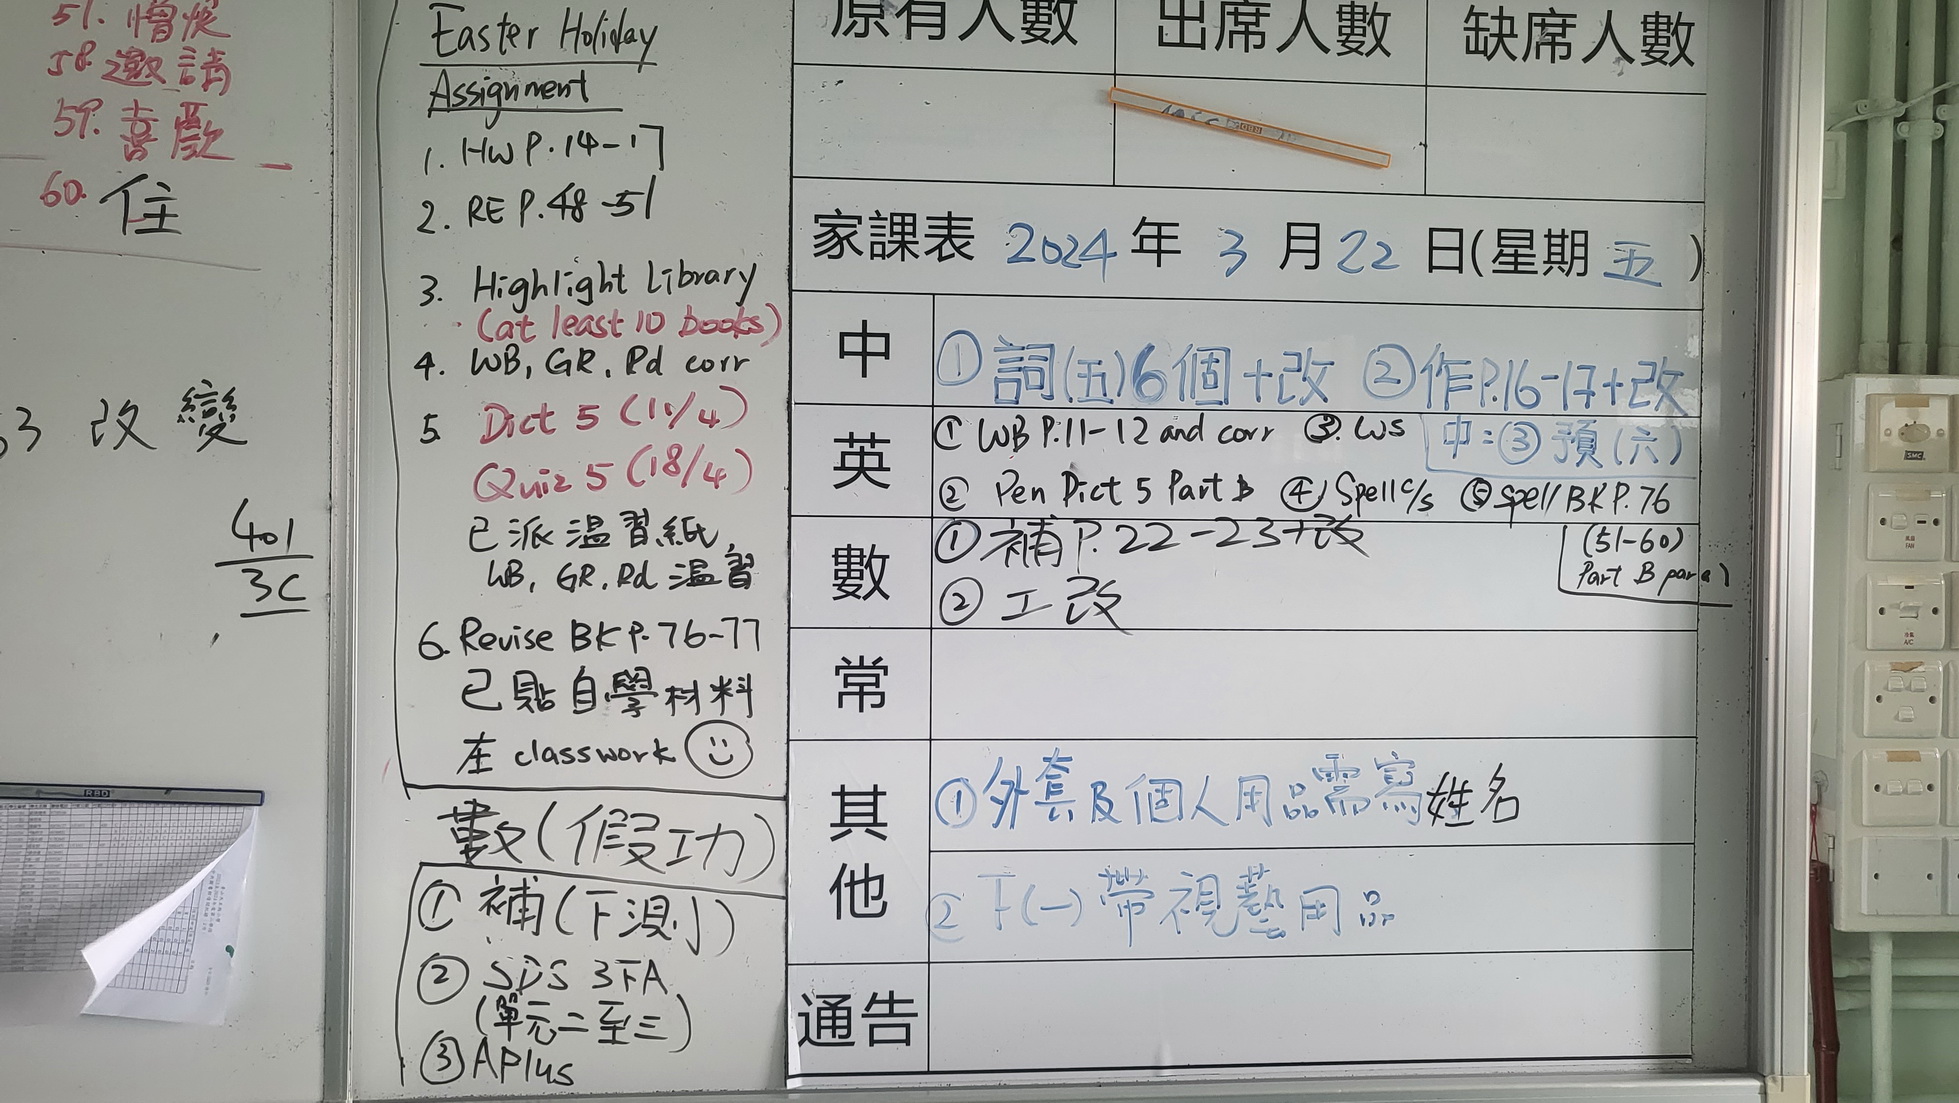 58. 邀請
59. 喜歡
60. 住
改變
401
3C
Easter Holiday
Assignment
1. HW P.14-17
2. RE P.48-51
3. Highlight Library
(at least 10 books)
4. WB, GR, Rd corr
5. Dict 5 (11/4)
Quiz 5 (18/4)
已派溫習紙,
WB, GR, Rd 溫習
6. Revise BK P.76-77
已貼自學材料
在 classwork
數(假功)
① 補(下測)
② SDS 3FA
(單元二至三)
③ APlus
原有人數 出席人數 缺席人數
家課表 2024 年 3 月 22 日(星期 五)
中 ①詞(五)6個+改 ②作P.16-17+改
中:③預(六)
英 ① WB P.11-12 and corr ③. WS
② Pen Dict 5 Part B ④ Spell c/s ⑤ Spell BK P.76
(51-60)
Part B para 1
數 ① 補P.22-23+改
② 工改
常
其他 ①外套及個人用品需寫姓名
②下(一)帶視藝用品
通告
RBD
SMC